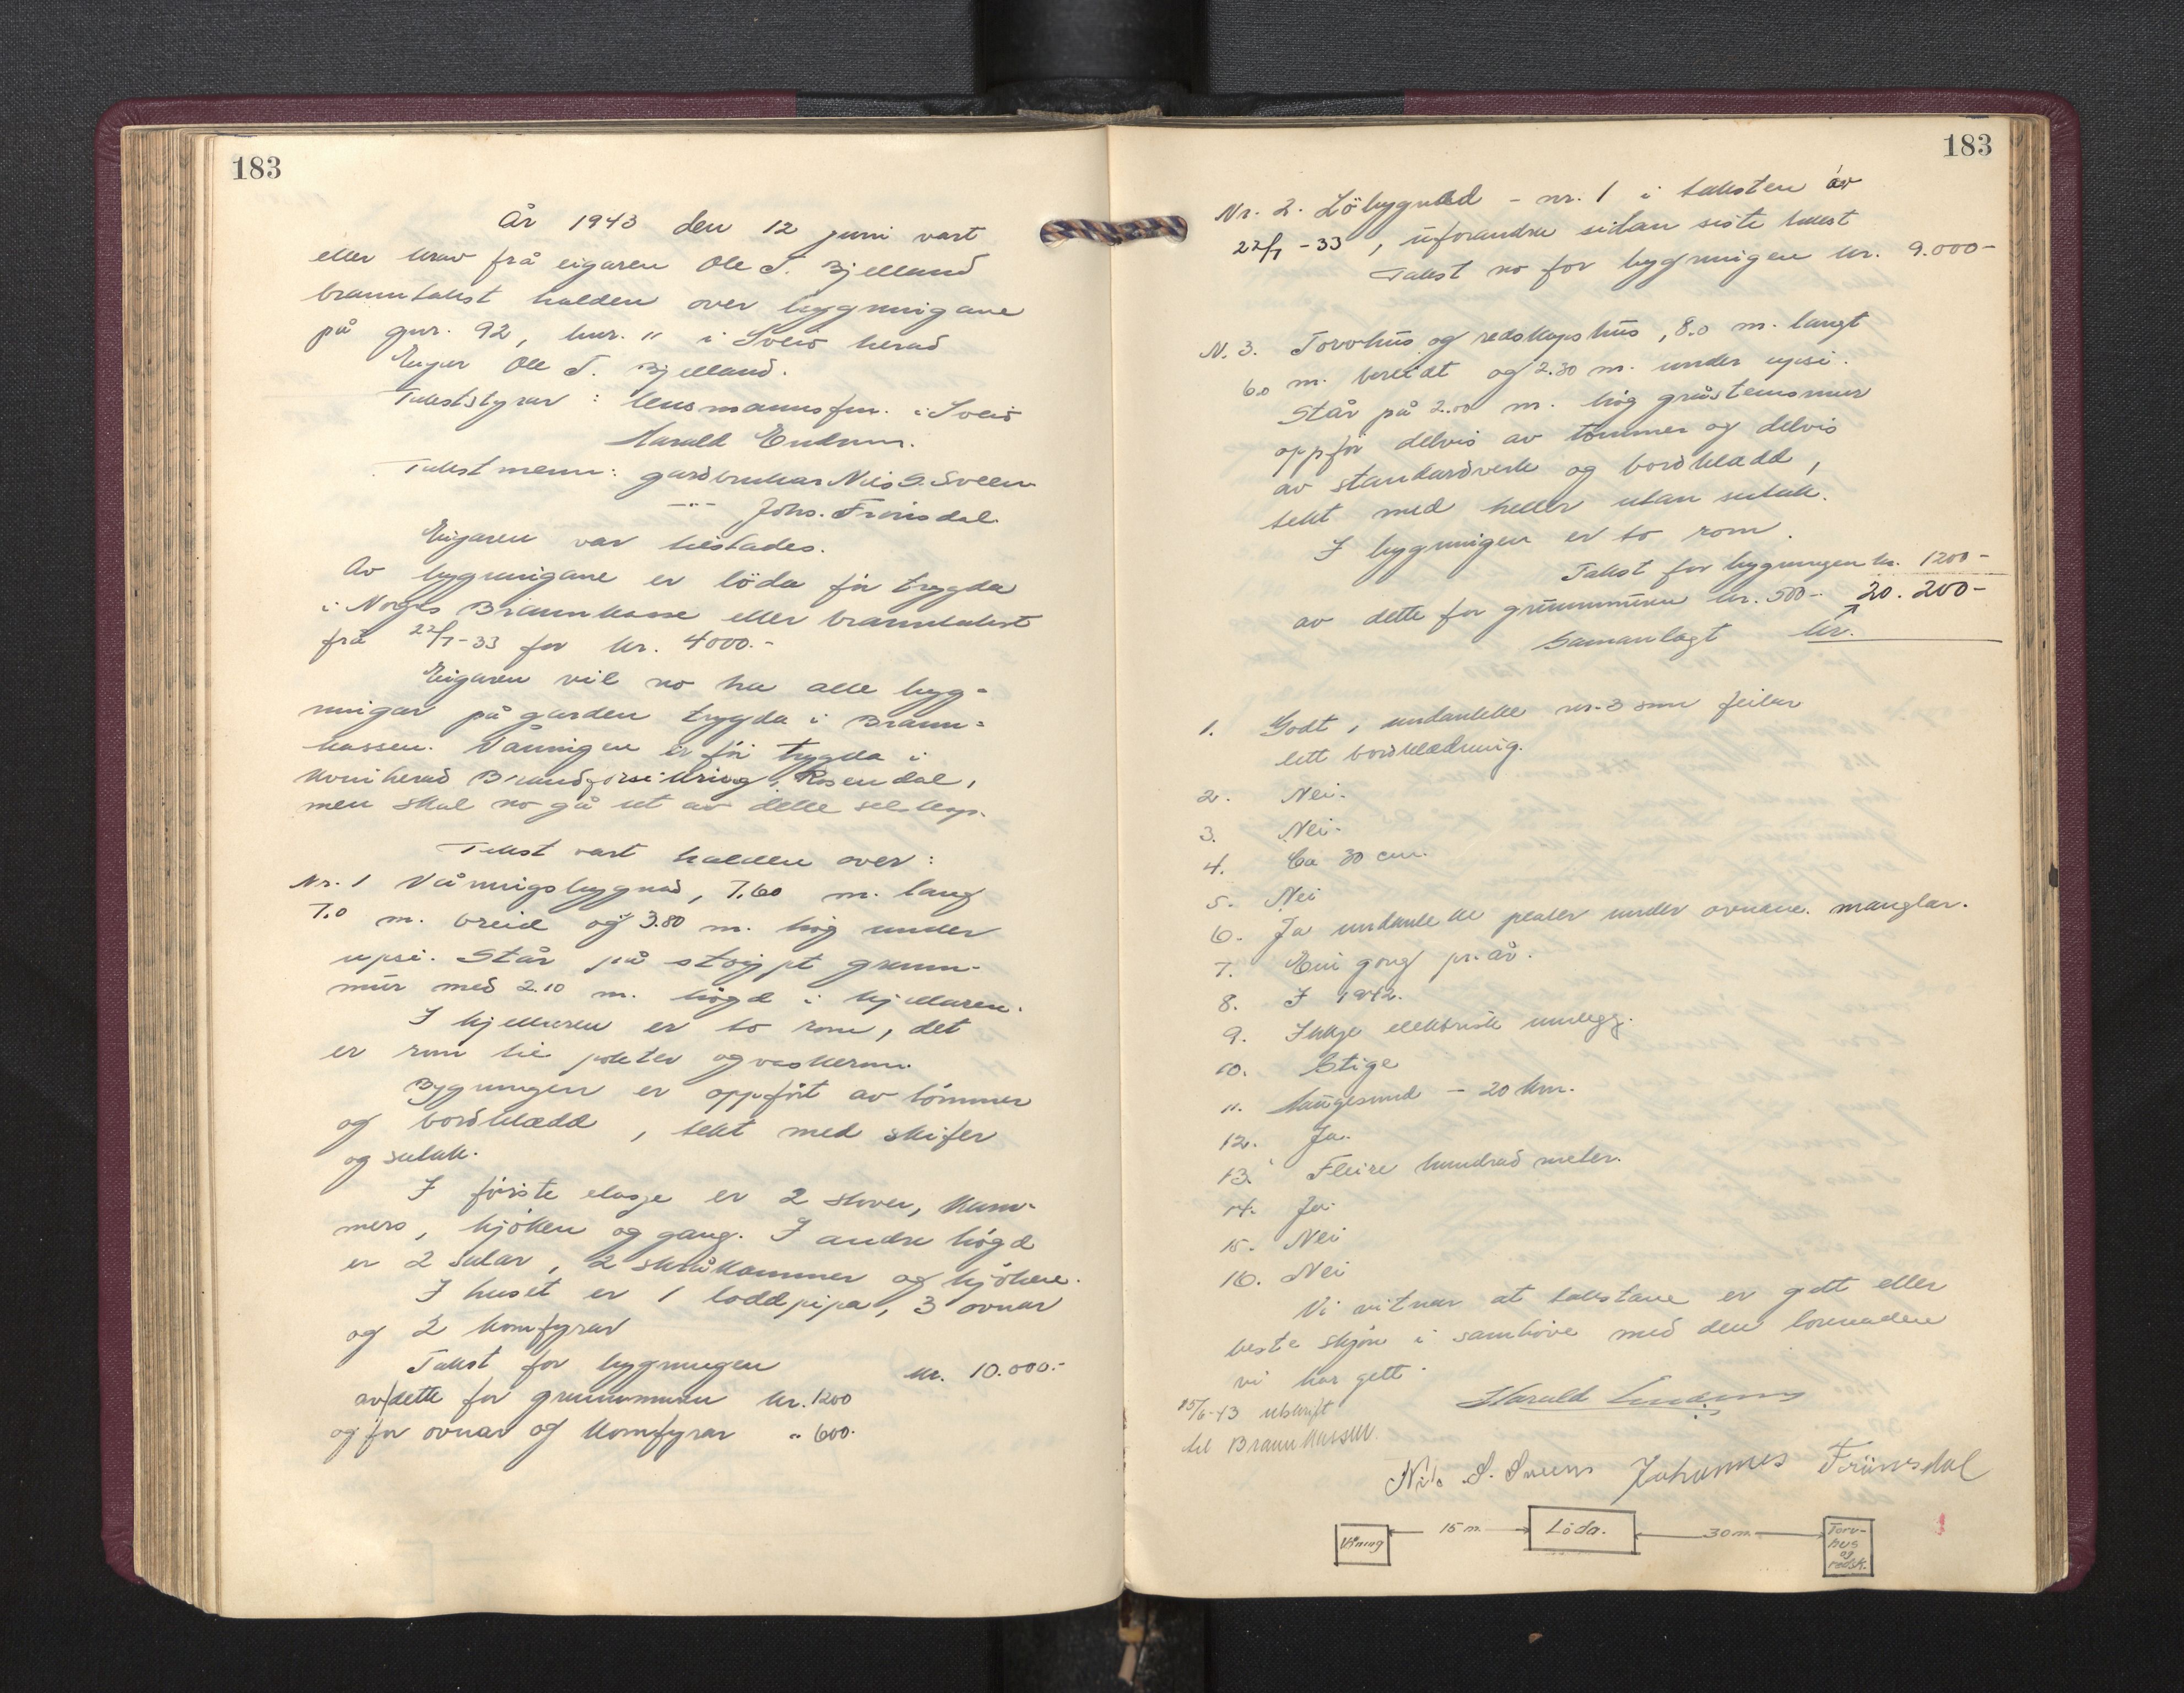 183
År 1943 den 12 juni vart
etter krav frå eigaren Ole T. Bjelland
branntakst halden over bygningane
på gnr. 92, bnr. " i Sveio herad
Eigar Ole T. Bjelland.
Takststyrar: lensmannsfm. i Sveio
Harald Endresen.
Takstmenn: gardbrukar Nils S. Sveen
-"- Johs. Frønsdal
Eigaren var tilstades.
Av bygningane er löda för trygda
i Norges Brannkasse etter branntakst
frå 22/7-33 for kr. 4000.-
Eigaren vil no ha alle byg-
ningar på garden trygda i Brann-
kassen. Våningen er för trygda i
Kvinherad Brandforsikring, Rosendal,
men skal no gå ut av dette selskap.
Takst vart halden over:
Nr. 1 Våningsbygnad, 7.60 m. lang
7.0 m. breid og 3.80 m. høg under
upsi. Står på støypt grunn-
mur med 2.10 m. høgd i kjellaren.
I kjellaren er to rom, det
er rom til poteter og vaskerom.
Bygningen er oppført av tömmer
og bordklædd, tekt med skifer
og sutak.
I første etasje er 2 stover, kam-
mers, kjøken og gang. I andre høgd
er 2 salar, 2 skråkammer og kjøken.
I huset er 1 loddpipa, 3 ovnar
og 2 komfyrar
Takst for bygningen kr. 10.000.-
av dette for grunnmuren kr. 1200
og for ovnar og komfyrar " 600.
183
Nr. 2. Löbygnad - nr. 1 i taksten av
22/7-33, uforandra sidan siste takst
Takst no for bygningen kr. 9.000-
N. 3. Torvhus og redskapshus, 8.0 m. langt
6.0 m. breidt og 2.30 m. under upsi.
Står på 2.00 m. høg gråsteinsmur
oppför delvis av tömmer og delvis
av standardverk og bordklædd,
tekt med heller utan sutak.
I bygningen er to rom.
Takst for bygningen kr. 1200-
av dette for grunnmuren kr. 500- 20.200-
Samanlagt kr.
1. Godt, undanteke nr. 3 som feilar
litt bordklædning.
2. Nei.
3. Nei.
4. Ca 30 cm.
5. Nei
6. Ja undanteke plater under ovnane manglar.
7. Ein gong pr. år.
8. I 1942.
9. Inkje elektrisk innlegg.
10. Stige
11. Haugesund - 20 km.
12. Ja.
13. Fleire hundrad meter.
14. Ja.
15. Nei
16. Nei
Vi vitnar at takstane er gett etter
beste skjøn i samhøve med den lovnaden
vi har gett.
15/6-43 utskrift
til Brannkassen.
Harald Endresen
Nils S. Sveen Johannes Frønsdal
Våning 15 m. Löda. 30 m. Torv-
hus
og
redsk.